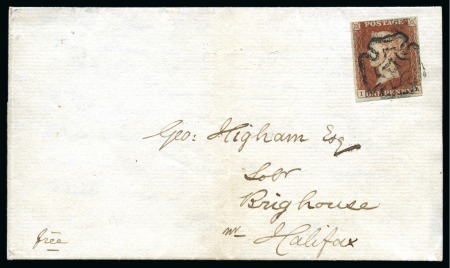 POSTAGE
ONE PENNY
Geo: Higham Esq
Solr
Brighouse
nr Halifax
free